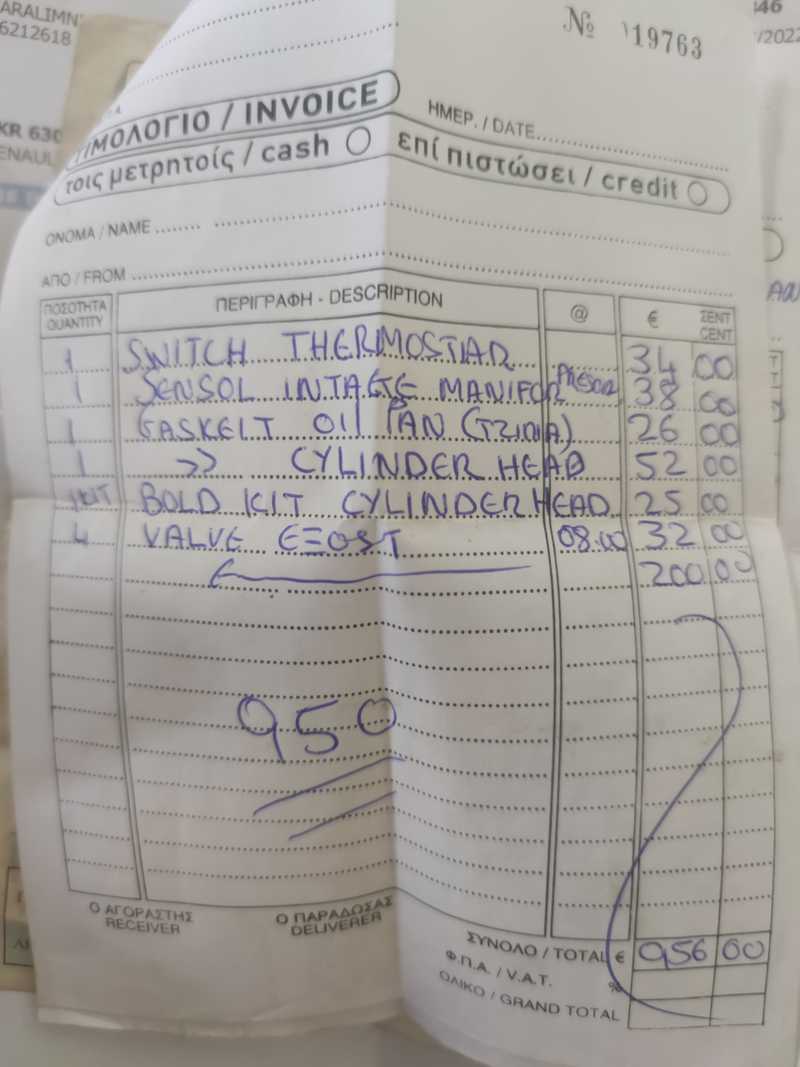 ARALIMN
6212618
346
/2022
KR 630
ENAUL
Νο 19763
ΤΙΜΟΛΟΓΙΟ / INVOICE
τοις μετρητοίς / cash
ΗΜΕΡ. / DATE
επί πιστώσει / credit
ΟΝΟΜΑ / NAME
ΑΠΟ / FROM
ΠΟΣΟΤΗΤΑ QUANTITY ΠΕΡΙΓΡΑΦΗ - DESCRIPTION @ € ΣΕΝΤ CENT
1 SWITCH THERMOSTIAR 34 00
1 SENSOL INTAGE MANIFOR 38 00
1 GASKEIT OIl PAN (TZINIA) 26 00
1 >> CYLINDER HEAD 52 00
1KIT BOLD KIT CYLINDER HEAD 25 00
4 VALVE EΞOST 08.00 32 00
200 00
950
Ο ΑΓΟΡΑΣΤΗΣ
RECEIVER
Ο ΠΑΡΑΔΟΣΑΣ
DELIVERER
ΣΥΝΟΛΟ / TOTAL € 956 00
Φ.Π.Α. / V.A.T. %
ΟΛΙΚΟ / GRAND TOTAL